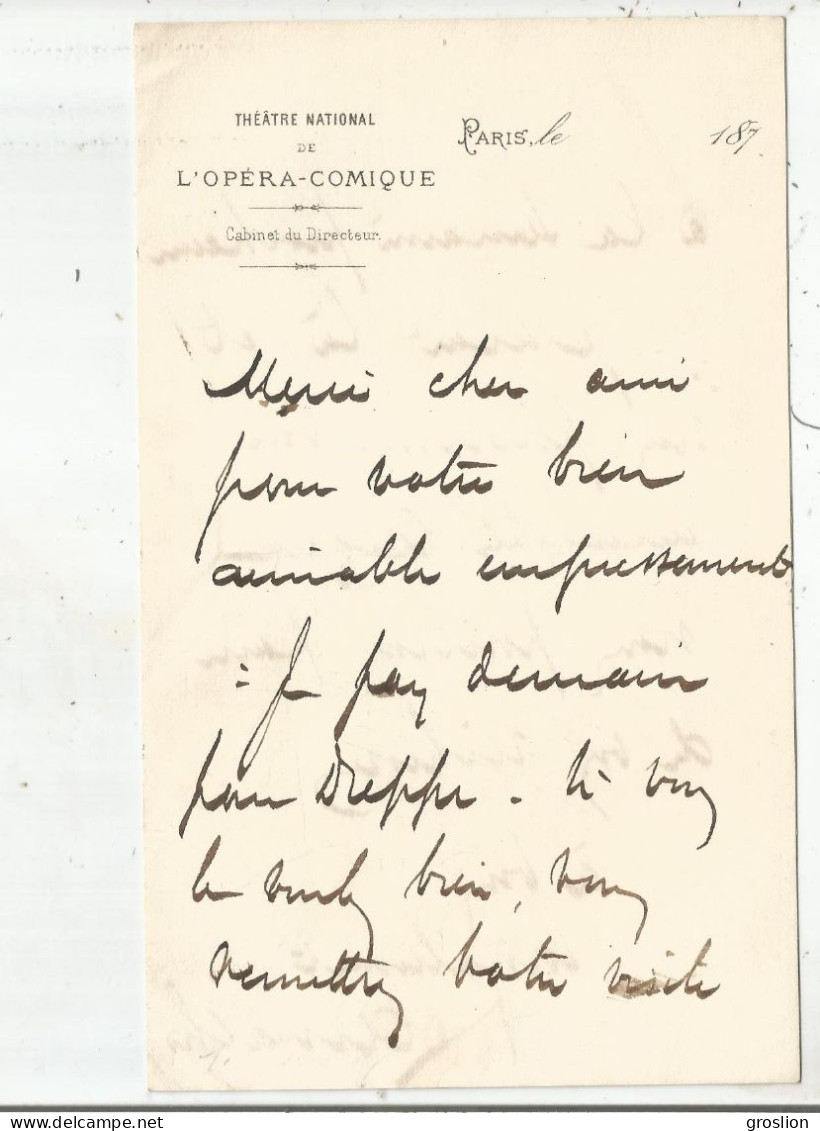 THÉÂTRE NATIONAL
DE
L'OPÉRA-COMIQUE
Cabinet du Directeur.
PARIS, le 187
Merci cher ami
pour votre bien
aimable empressement
: Je pars demain
pour Dieppe. Si vous
le voulez bien, vous
remettrez votre visite
groslion